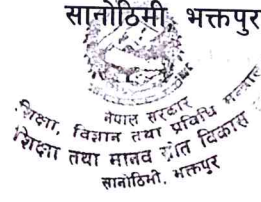 सानोठिमी, भक्तपुर
नेपाल सरकार
शिक्षा, विज्ञान तथा प्रविधि
शिक्षा तथा मानव स्रोत विकास
सानोठिमी, भक्तपुर